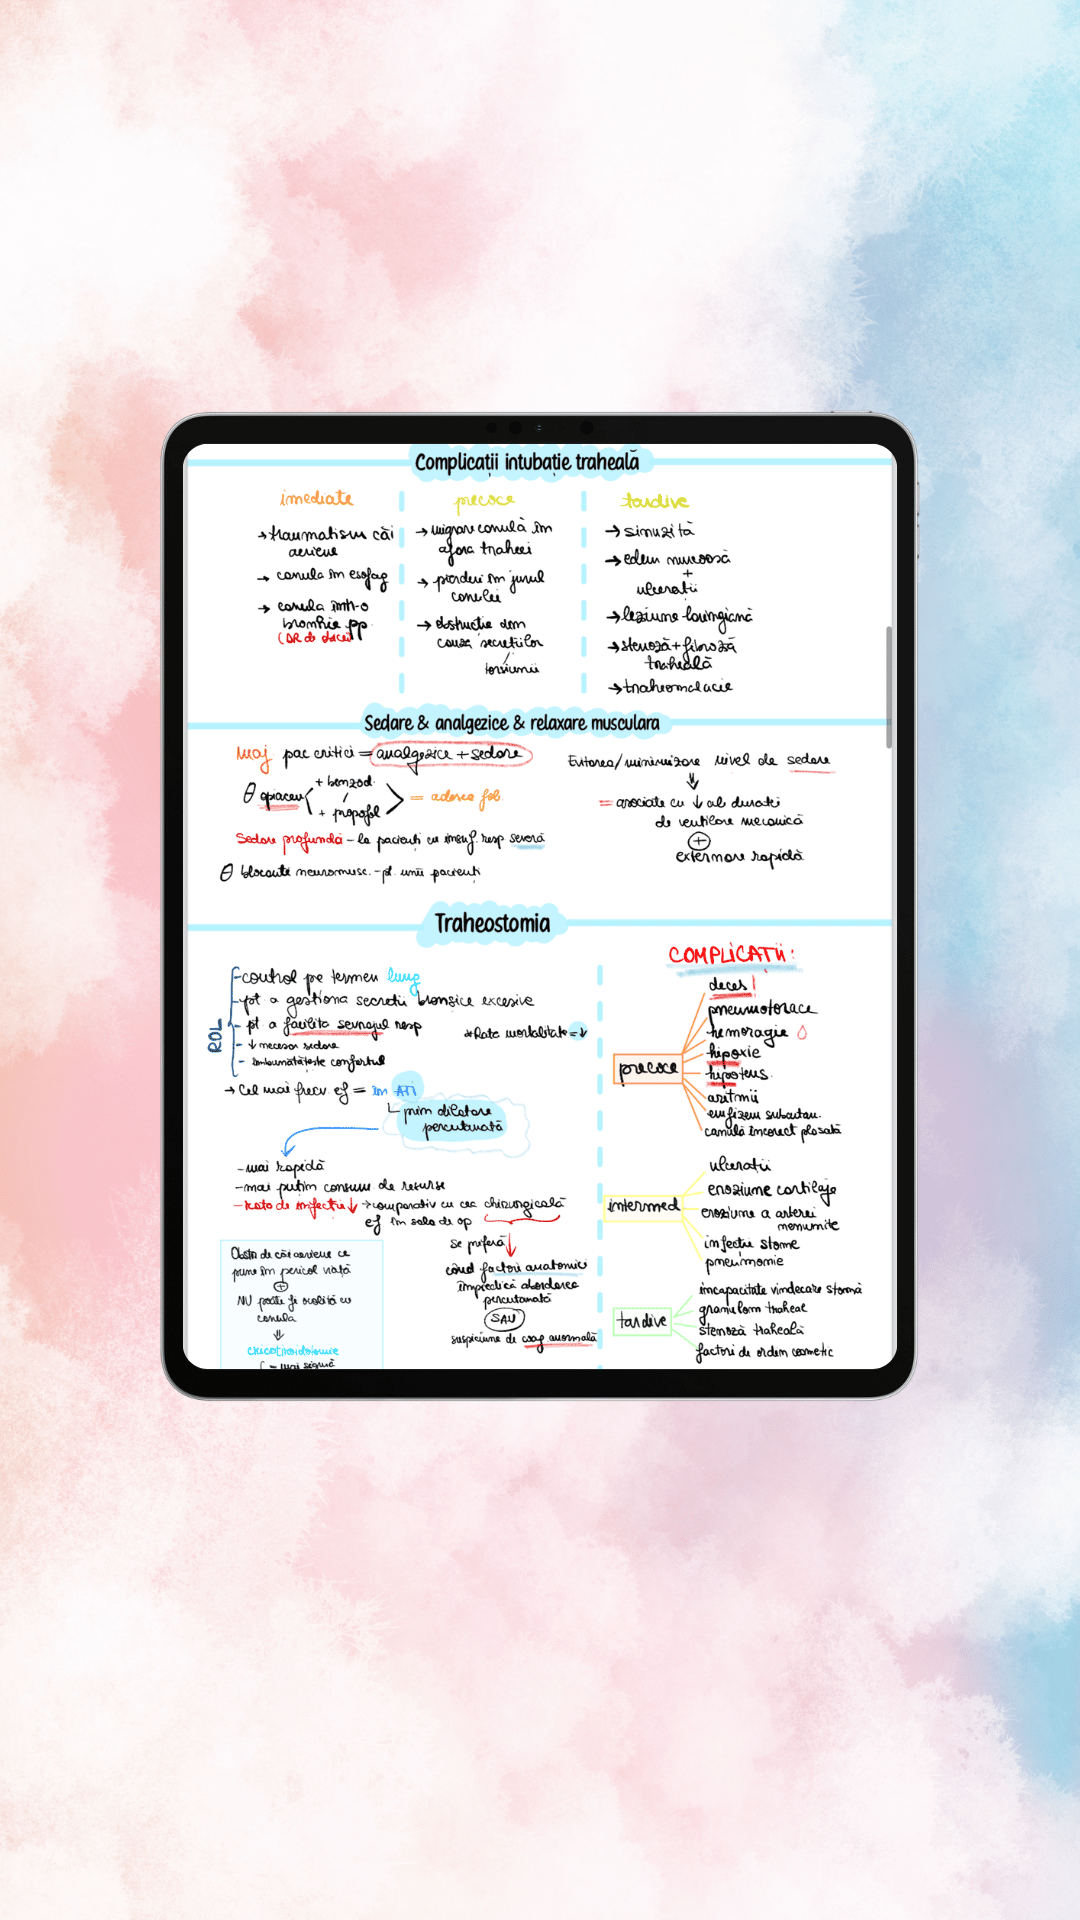 Complicații intubație traheală
imediate
→ traumatism căi
aeriene
→ canula în esofag
→ canula într-o
bronhie pp
precoce
→ migrare canulă în
afara traheei
→ pierderi în jurul
canulei
→ obstrucție din
cauza secrețiilor
torsiunii
tardive
→ sinuzită
→ edem mucoasă
+
ulcerații
→ leziune laringiană
→ stenoză + fibroză
traheală
→ traheomalacie
Sedare & analgezice & relaxare musculara
maj pac critici = analgezice + sedare
opiaceu
+ benzod.
+ propofol
= adesea fol.
Sedare profundă - la pacienți cu insuf. resp severă
blocante neuromusc. - pt. unii pacienți
Evitarea/minimizare nivel de sedare
= asociate cu ↓ ale duratei
de ventilare mecanică
+
externare rapidă
Traheostomia
ROL
- control pe termen lung
- pt a gestiona secretii bronsice excesive
- pt a facilita sevrajul resp
- ↓ necesar sedare
- imbunatateste confortul
* Rata mortalitate = ↓
→ Cel mai frecv. ef = în ATI
prin dilatare
percutanată
- mai rapidă
- mai puțin consum de resurse
- rata de infectie ↓ → comparativ cu cea chirurgicală
ef în sala de op
se preferă
când factori anatomici
împiedică abordarea
percutanată
SAU
suspiciune de coag anormală
Obstr de căi aeriene ce
pune în pericol viață
+
NU poate fi ocolită cu
canula
⇓
cricotiroidotomie
= mai sigură
COMPLICAȚII:
precoce
deces!
pneumotorace
hemoragie
hipoxie
hipotens.
aritmii
emfizem subcutan.
canulă incorect plasată
intermed
ulcerații
eroziune cartilaje
eroziune a arterei
nenumite
infectie stome
pneumonie
tardive
incapacitate vindecare stomă
granulom traheal
stenoză traheală
factori de ordin cosmetic